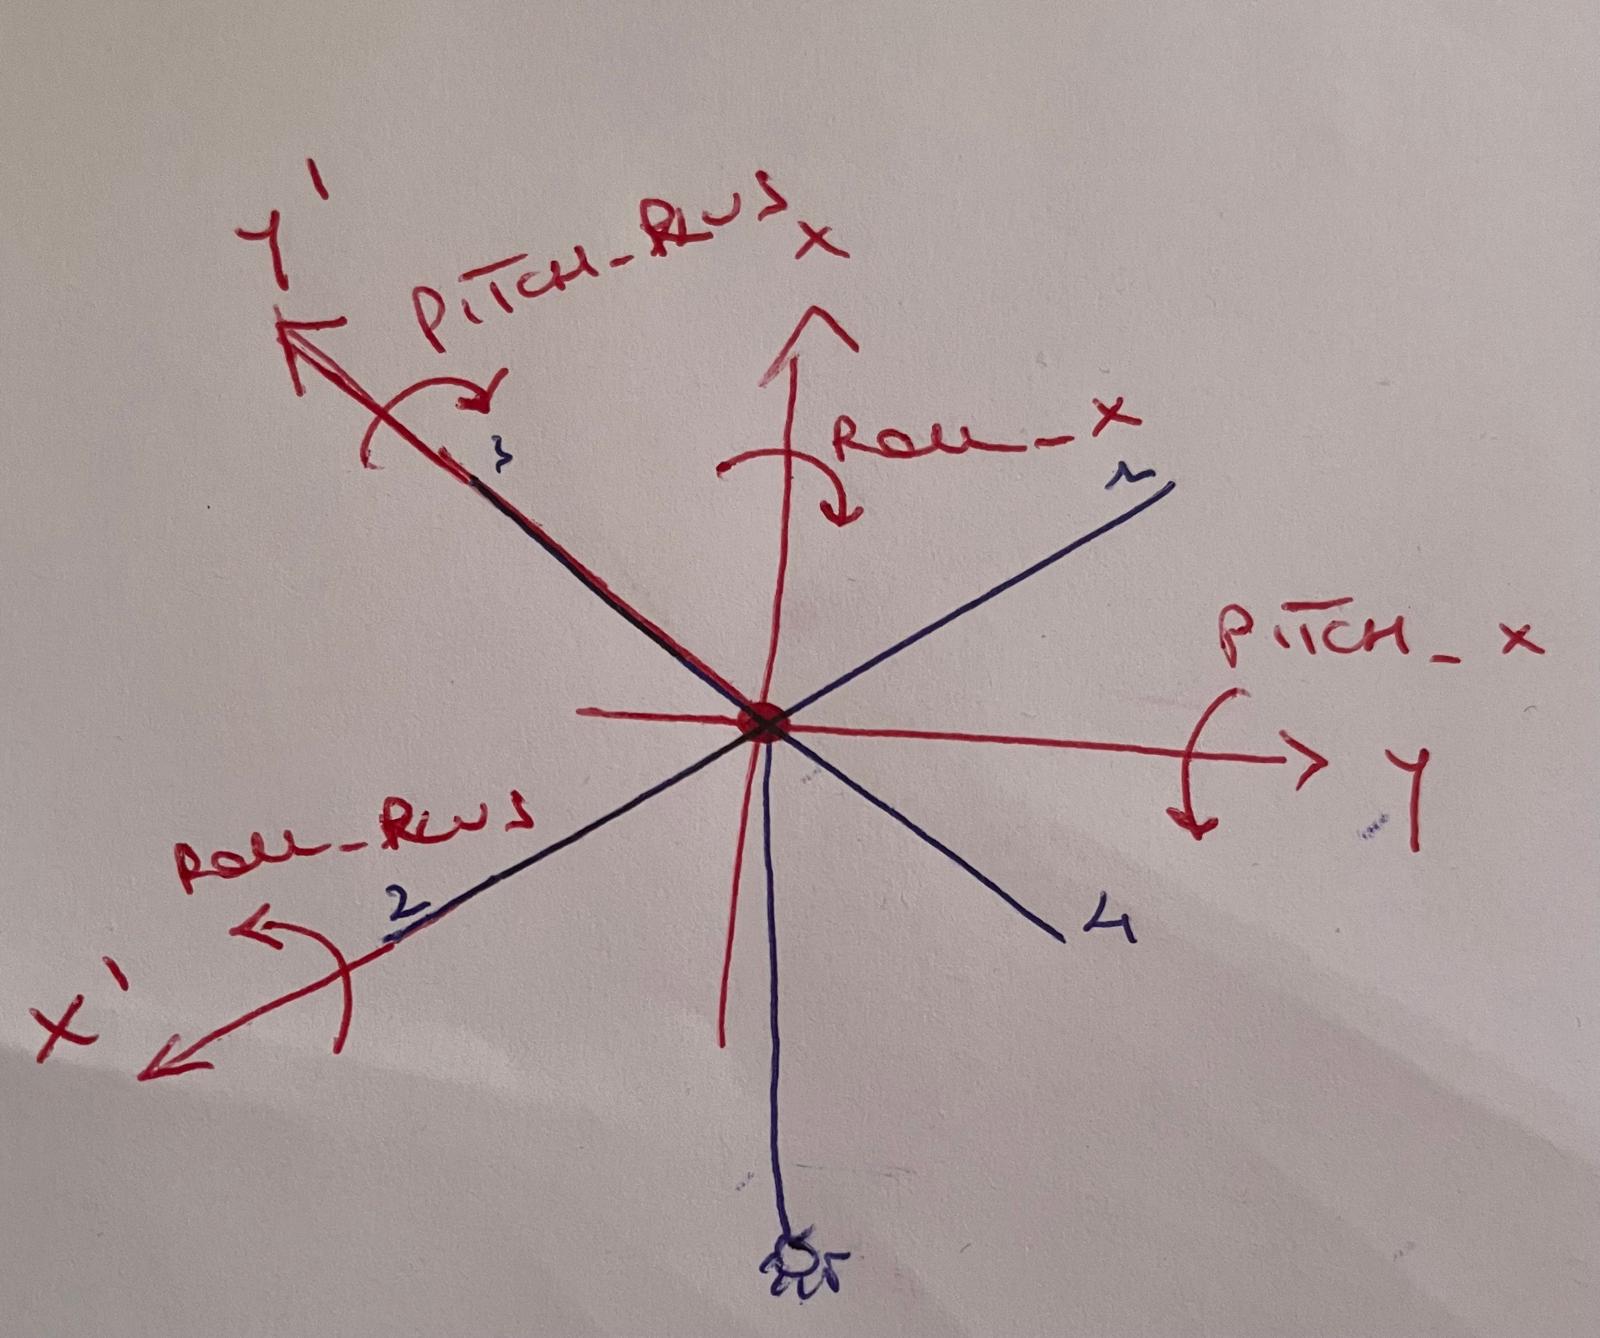 Y'
PITCH_PLUS
X
ROLL_X
1
3
PITCH_X
Y
ROLL_PLUS
2
4
X'